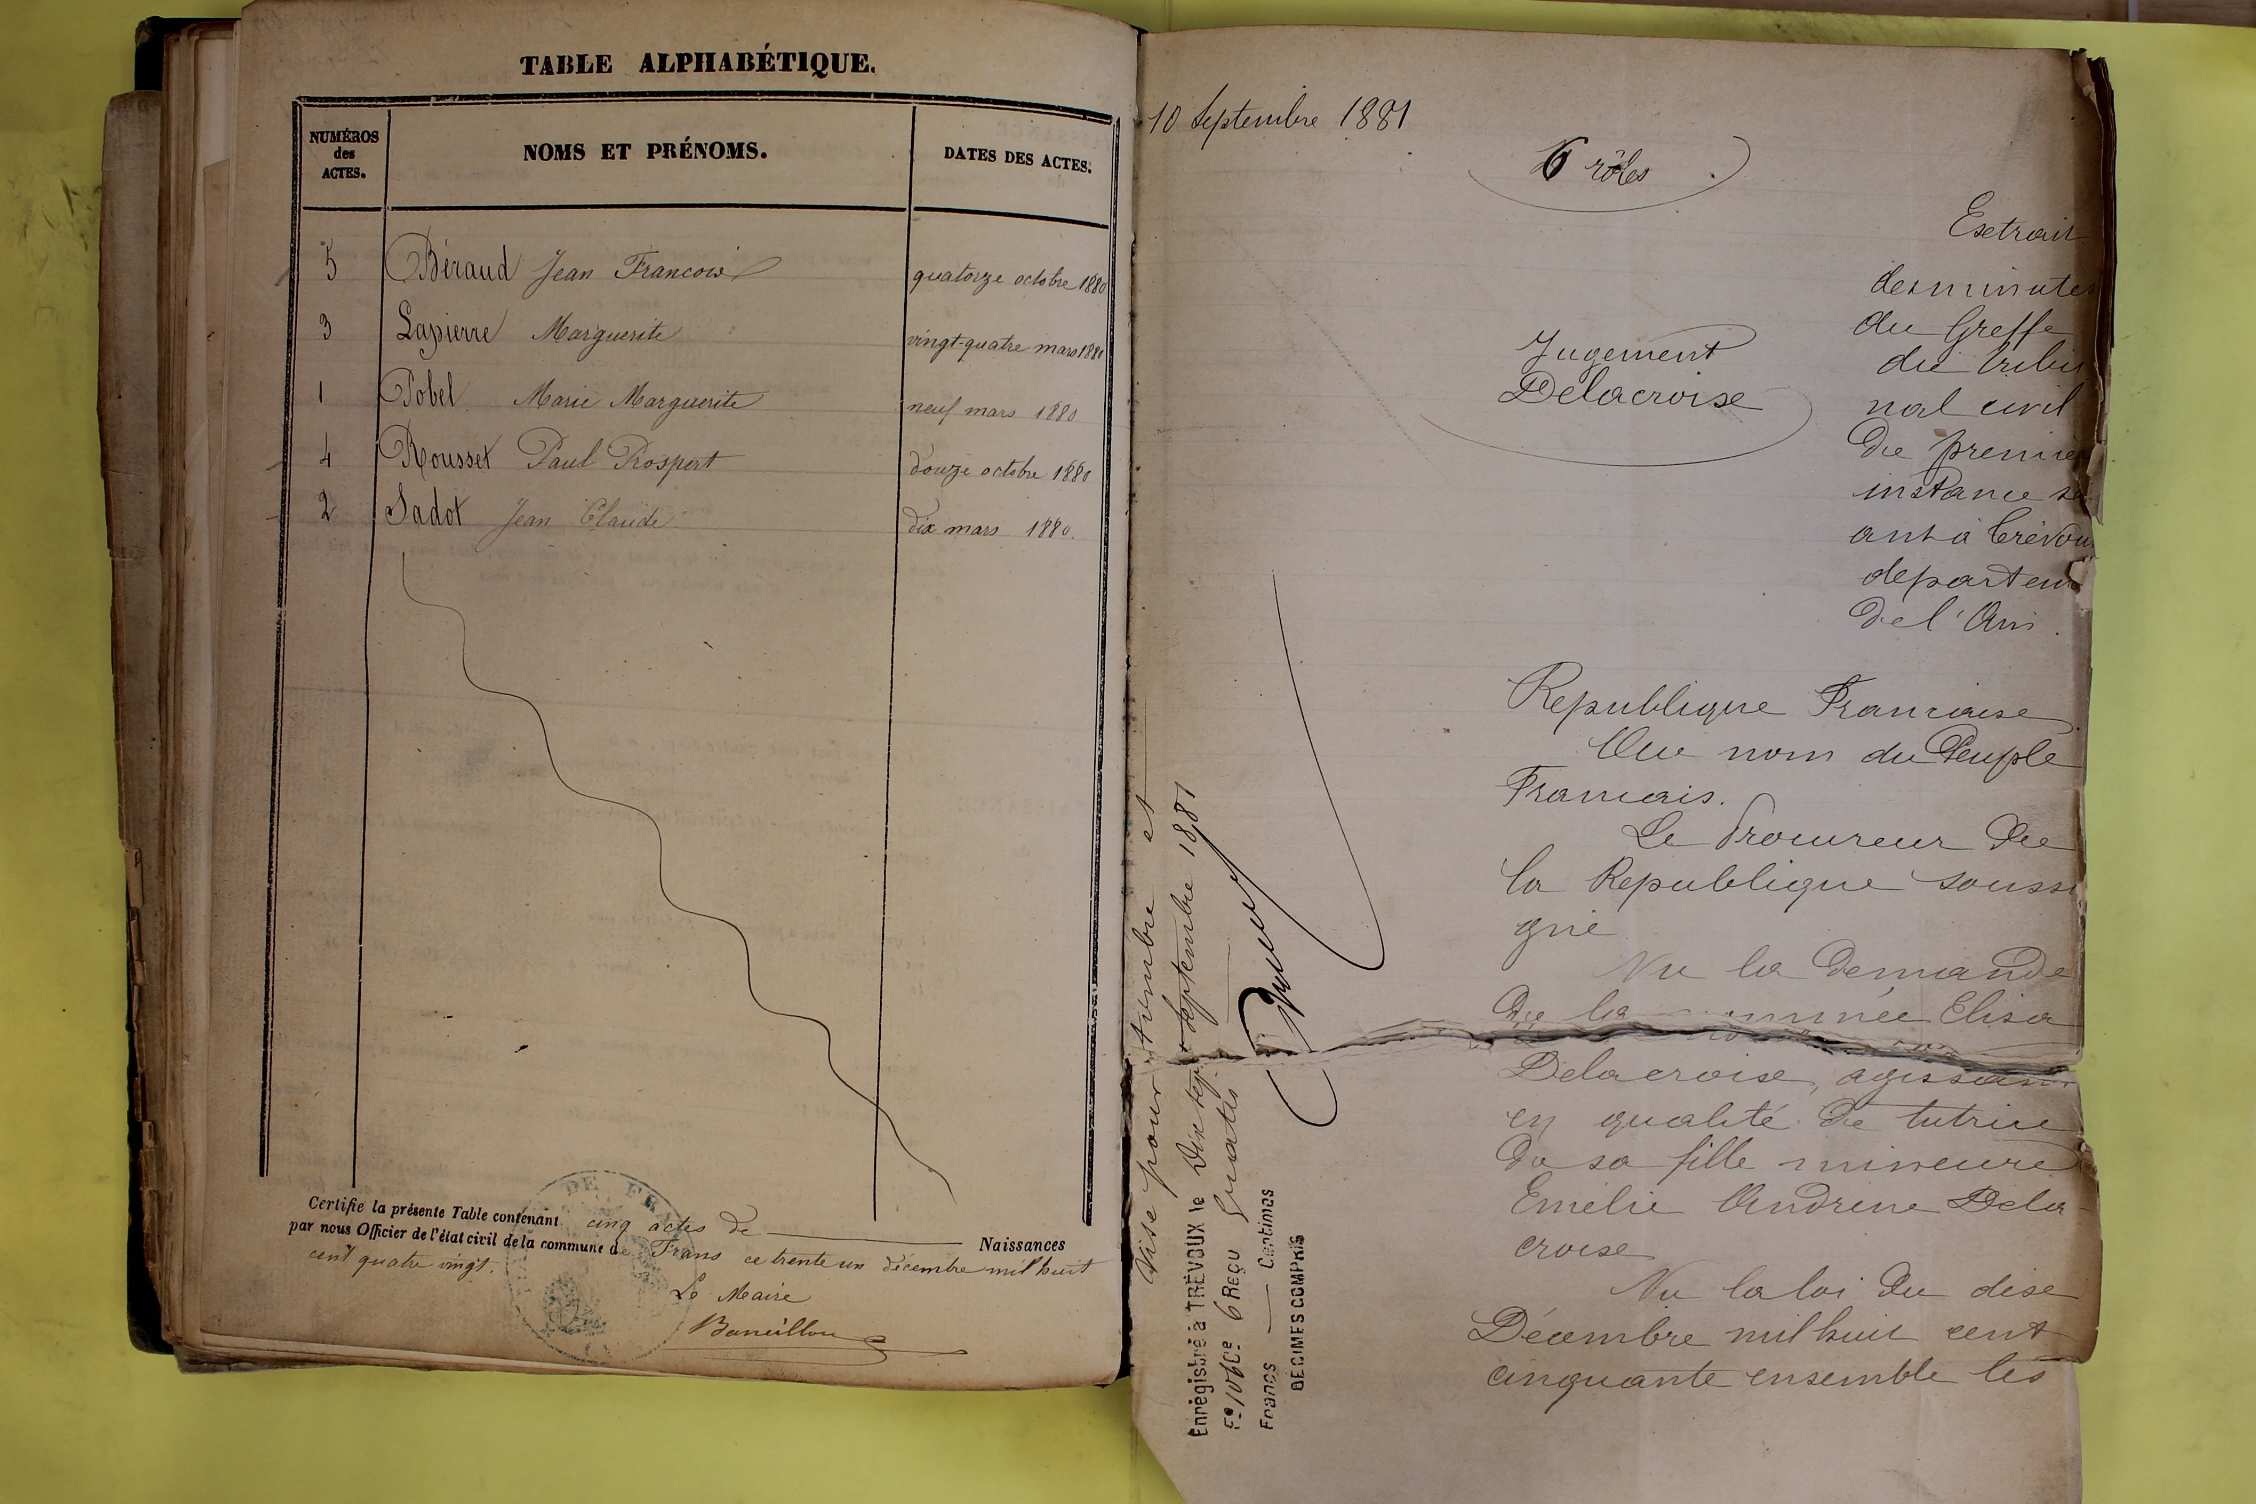 TABLE ALPHABÉTIQUE.
NUMÉROS
des
ACTES.
NOMS ET PRÉNOMS.
DATES DES ACTES.
5 Béraud Jean Francois quatorze octobre 1880
3 Lapierre Marguerite vingt-quatre mars 1880
1 Pobel Marie Marguerite neuf mars 1880
4 Rousset Paul Prospert douze octobre 1880
2 Sadot Jean Claude dix mars 1880.
Certifie la présente Table contenant cinq actes de Naissances
par nous Officier de l'état civil de la commune de Frans ce trente un décembre mil huit
cent quatre vingt.
Le Maire
10 Septembre 1881
6 rôles
Jugement
Delacroise
Extrait
des minutes
du Greffe
du tribu
nal civil
de premiè
instance sé
ant à Trévou
departem
de l'Ain.
Republique Francaise
Au nom du Peuple
Francais.
Le Procureur de
la Republique soussi
gné
Vu la demande
de la nommée Elisa
Delacroise, agissant
en qualité de tutrice
de sa fille mineure
Emélie Andrine Dela
croise
Vu la loi du dix
Décembre mil huit cent
cinquante ensemble les
Visé pour timbre et
Enregistré à TRÉVOUX le Dix sept septembre 1881
F° 106 C° 6 REÇU Gratis
Francs Centimes
DÉCIMES COMPRIS